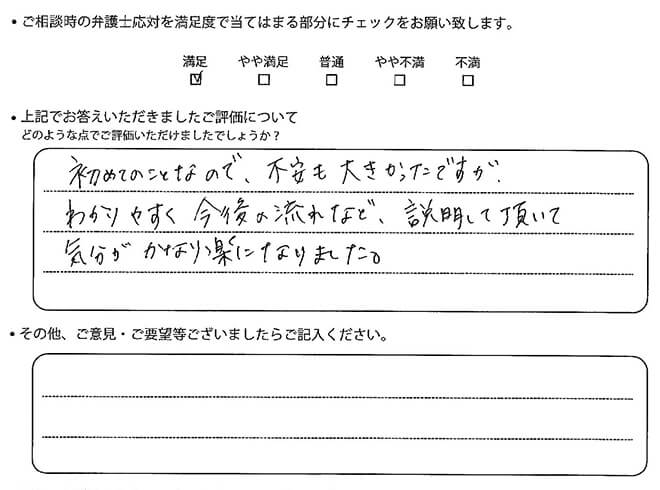 • ご相談時の弁護士応対を満足度で当てはまる部分にチェックをお願い致します。
満足 やや満足 普通 やや不満 不満
☑ ☐ ☐ ☐ ☐
• 上記でお答えいただきましたご評価について
どのような点でご評価いただけましたでしょうか？
初めてのことなので、不安も大きかったですが、
わかりやすく今後の流れなど、説明して頂いて
気分がかなり楽になりました。
• その他、ご意見・ご要望等ございましたらご記入ください。